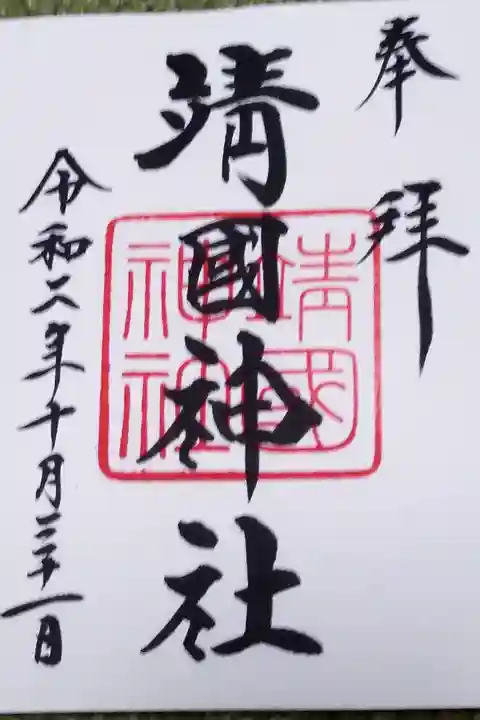 奉拝
靖國神社
靖國
神社
令和二年十月三十一日